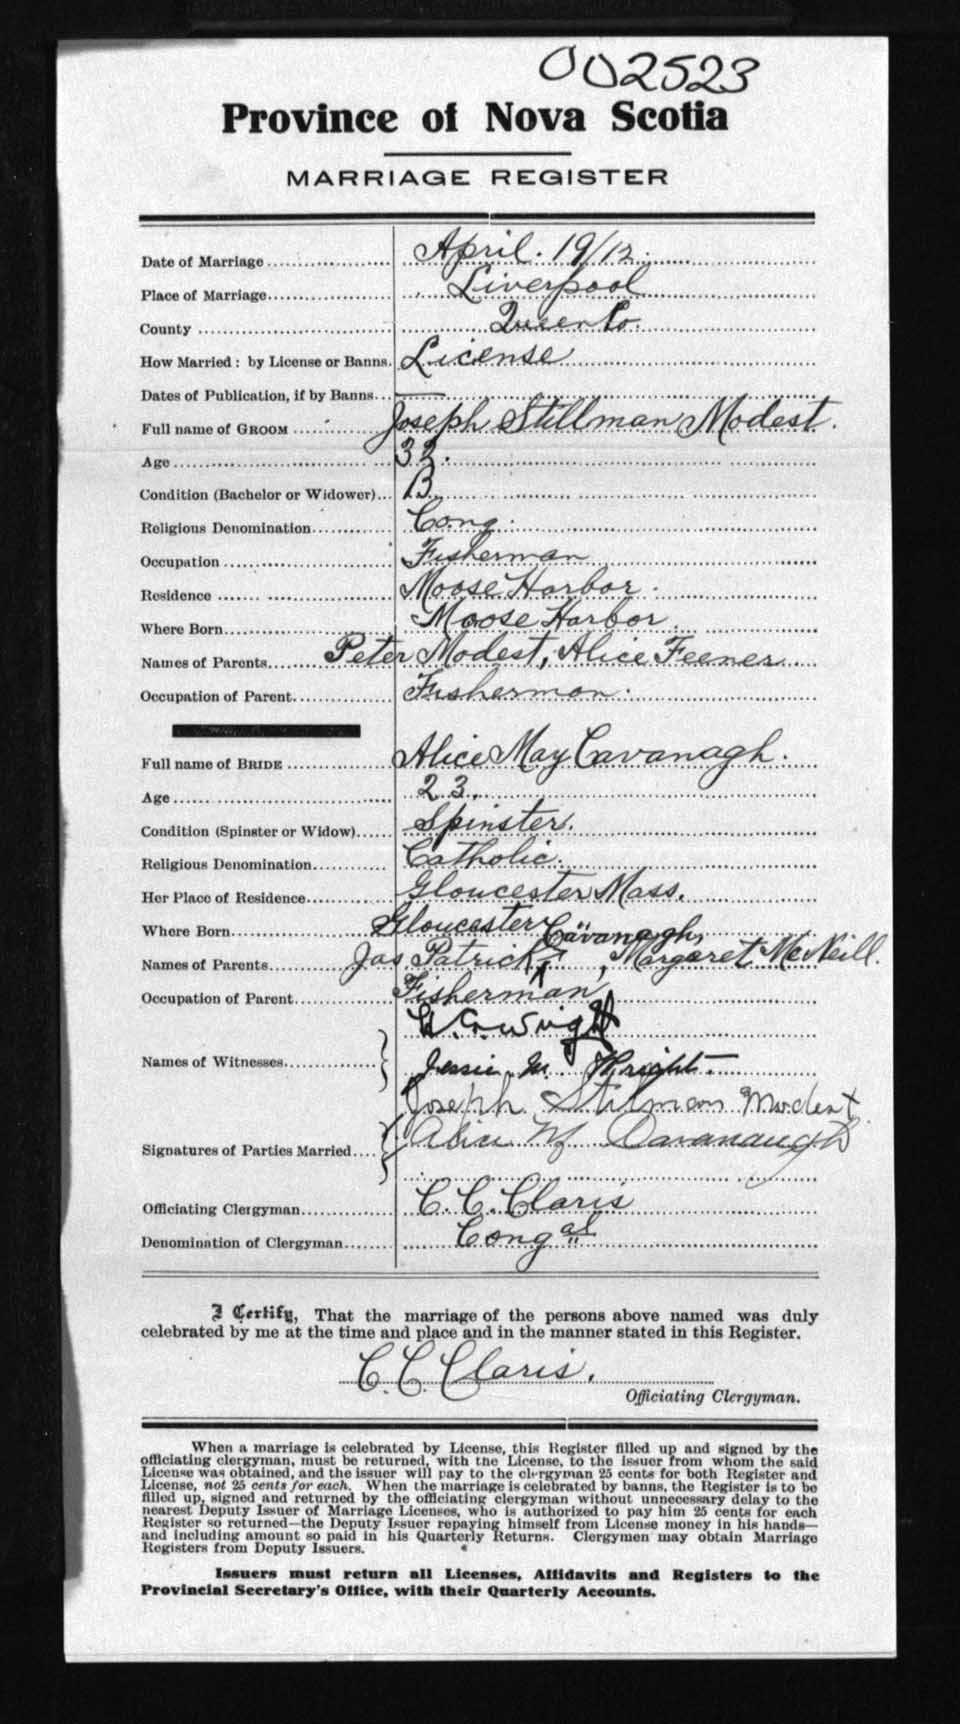 002523
Province of Nova Scotia
MARRIAGE REGISTER
Date of Marriage April. 19/12.
Place of Marriage Liverpool
County Queen Co.
How Married: by License or Banns. License
Dates of Publication, if by Banns —
Full name of GROOM Joseph Stillman Modest.
Age 32.
Condition (Bachelor or Widower) B
Religious Denomination Cong.
Occupation Fisherman
Residence Moose Harbor.
Where Born Moose Harbor.
Names of Parents Peter Modest, Alice Feener
Occupation of Parent Fisherman.
Full name of BRIDE Alice May Cavanagh.
Age 23.
Condition (Spinster or Widow) Spinster.
Religious Denomination Catholic.
Her Place of Residence Gloucester Mass.
Where Born Gloucester
Names of Parents Jas Patrick Cavanagh, Margaret McNeill.
Occupation of Parent Fisherman
Names of Witnesses Wright
Jessie M. Wright.
Signatures of Parties Married Joseph Stilman Modest
Alice M Cavanaugh
Officiating Clergyman C. C. Claris
Denomination of Clergyman Congal
I Certify, That the marriage of the persons above named was duly
celebrated by me at the time and place and in the manner stated in this Register.
C. C. Claris.
Officiating Clergyman.
When a marriage is celebrated by License, this Register filled up and signed by the
officiating clergyman, must be returned, with the License, to the issuer from whom the said
License was obtained, and the issuer will pay to the clergyman 25 cents for both Register and
License, not 25 cents for each. When the marriage is celebrated by banns, the Register is to be
filled up, signed and returned by the officiating clergyman without unnecessary delay to the
nearest Deputy Issuer of Marriage Licenses, who is authorized to pay him 25 cents for each
Register so returned—the Deputy Issuer repaying himself from License money in his hands—
and including amount so paid in his Quarterly Returns. Clergymen may obtain Marriage
Registers from Deputy Issuers.
Issuers must return all Licenses, Affidavits and Registers to the
Provincial Secretary's Office, with their Quarterly Accounts.